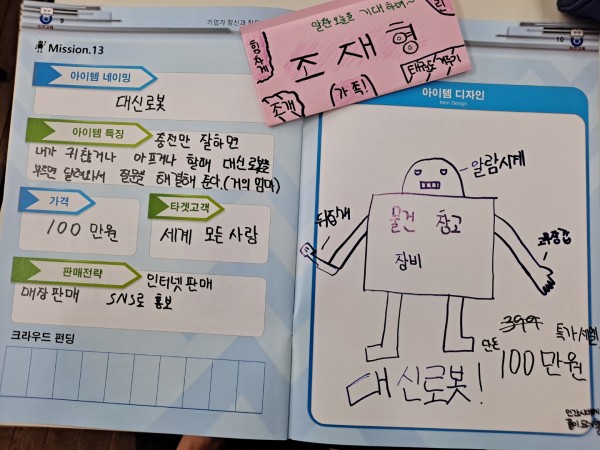 9
기업가 정신과 창
Mission.13
아이템 네이밍
대신로봇
아이템 특징
충전만 잘하면
내가 귀찮거나 아프거나 할때 대신로봇을
부르면 달려와서 질문을 해결해 준다.(거의 엄마)
가격
100만원
타겟고객
세계 모든 사람
판매전략
인터넷판매
매장판매 SNS로 홍보
크라우드 펀딩
알찬 오늘을 기대하며~
조재형
(가족!)
조개
10
아이템 디자인
Item Design
알람시계
뒤집개
물건 창고
장비
고무장갑
특가세일
단돈
100만원
대신로봇!